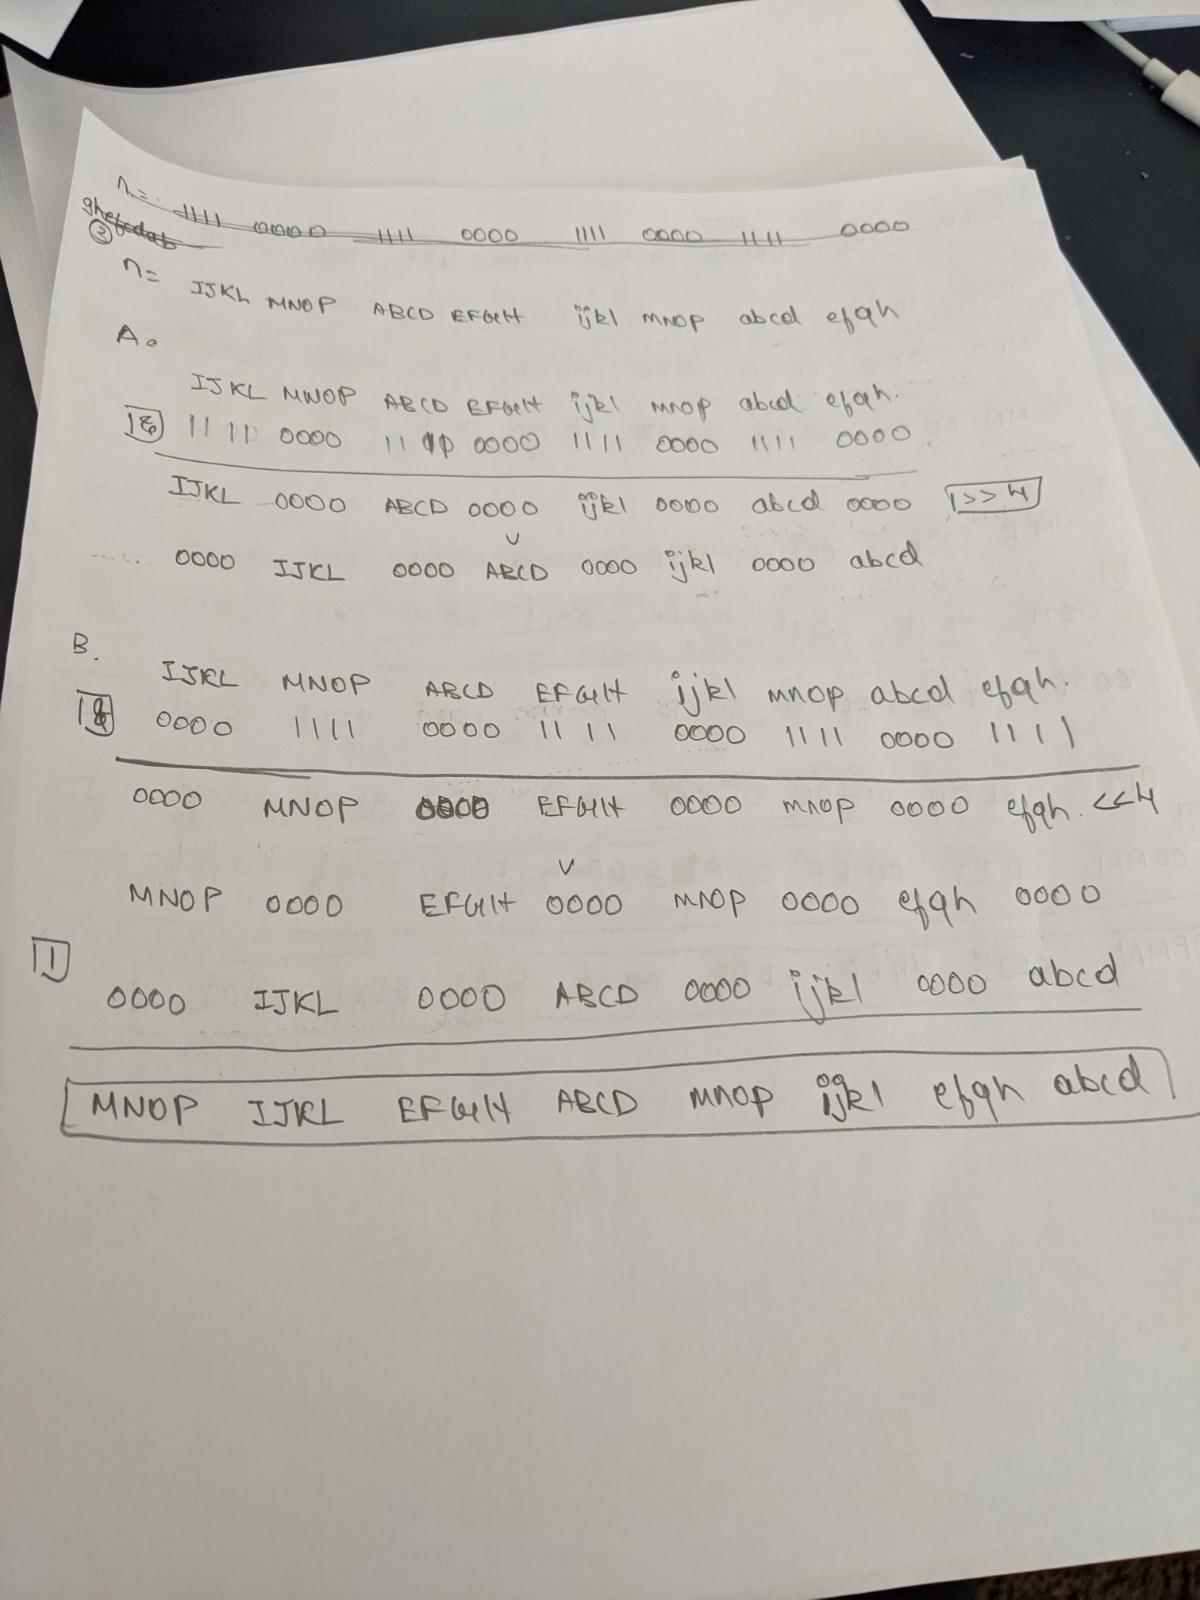 n= 1111 0000 1111 0000 1111 0000 1111 0000
ghefcdab
③
n= IJKL MNOP ABCD EFGH ijkl mnop abcd efgh
A.
IJKL MNOP ABCD EFGH ijkl mnop abcd efgh.
& 1111 0000 1111 0000 1111 0000 1111 0000
IJKL 0000 ABCD 0000 ijkl 0000 abcd 0000 >> 4
0000 IJKL 0000 ABCD 0000 ijkl 0000 abcd
B.
IJKL MNOP ABCD EFGH ijkl mnop abcd efgh.
& 0000 1111 0000 1111 0000 1111 0000 1111
0000 MNOP 0000 EFGH 0000 mnop 0000 efgh. <<4
MNOP 0000 EFGH 0000 mnop 0000 efgh 0000
| 0000 IJKL 0000 ABCD 0000 ijkl 0000 abcd
MNOP IJKL EFGH ABCD mnop ijkl efgh abcd